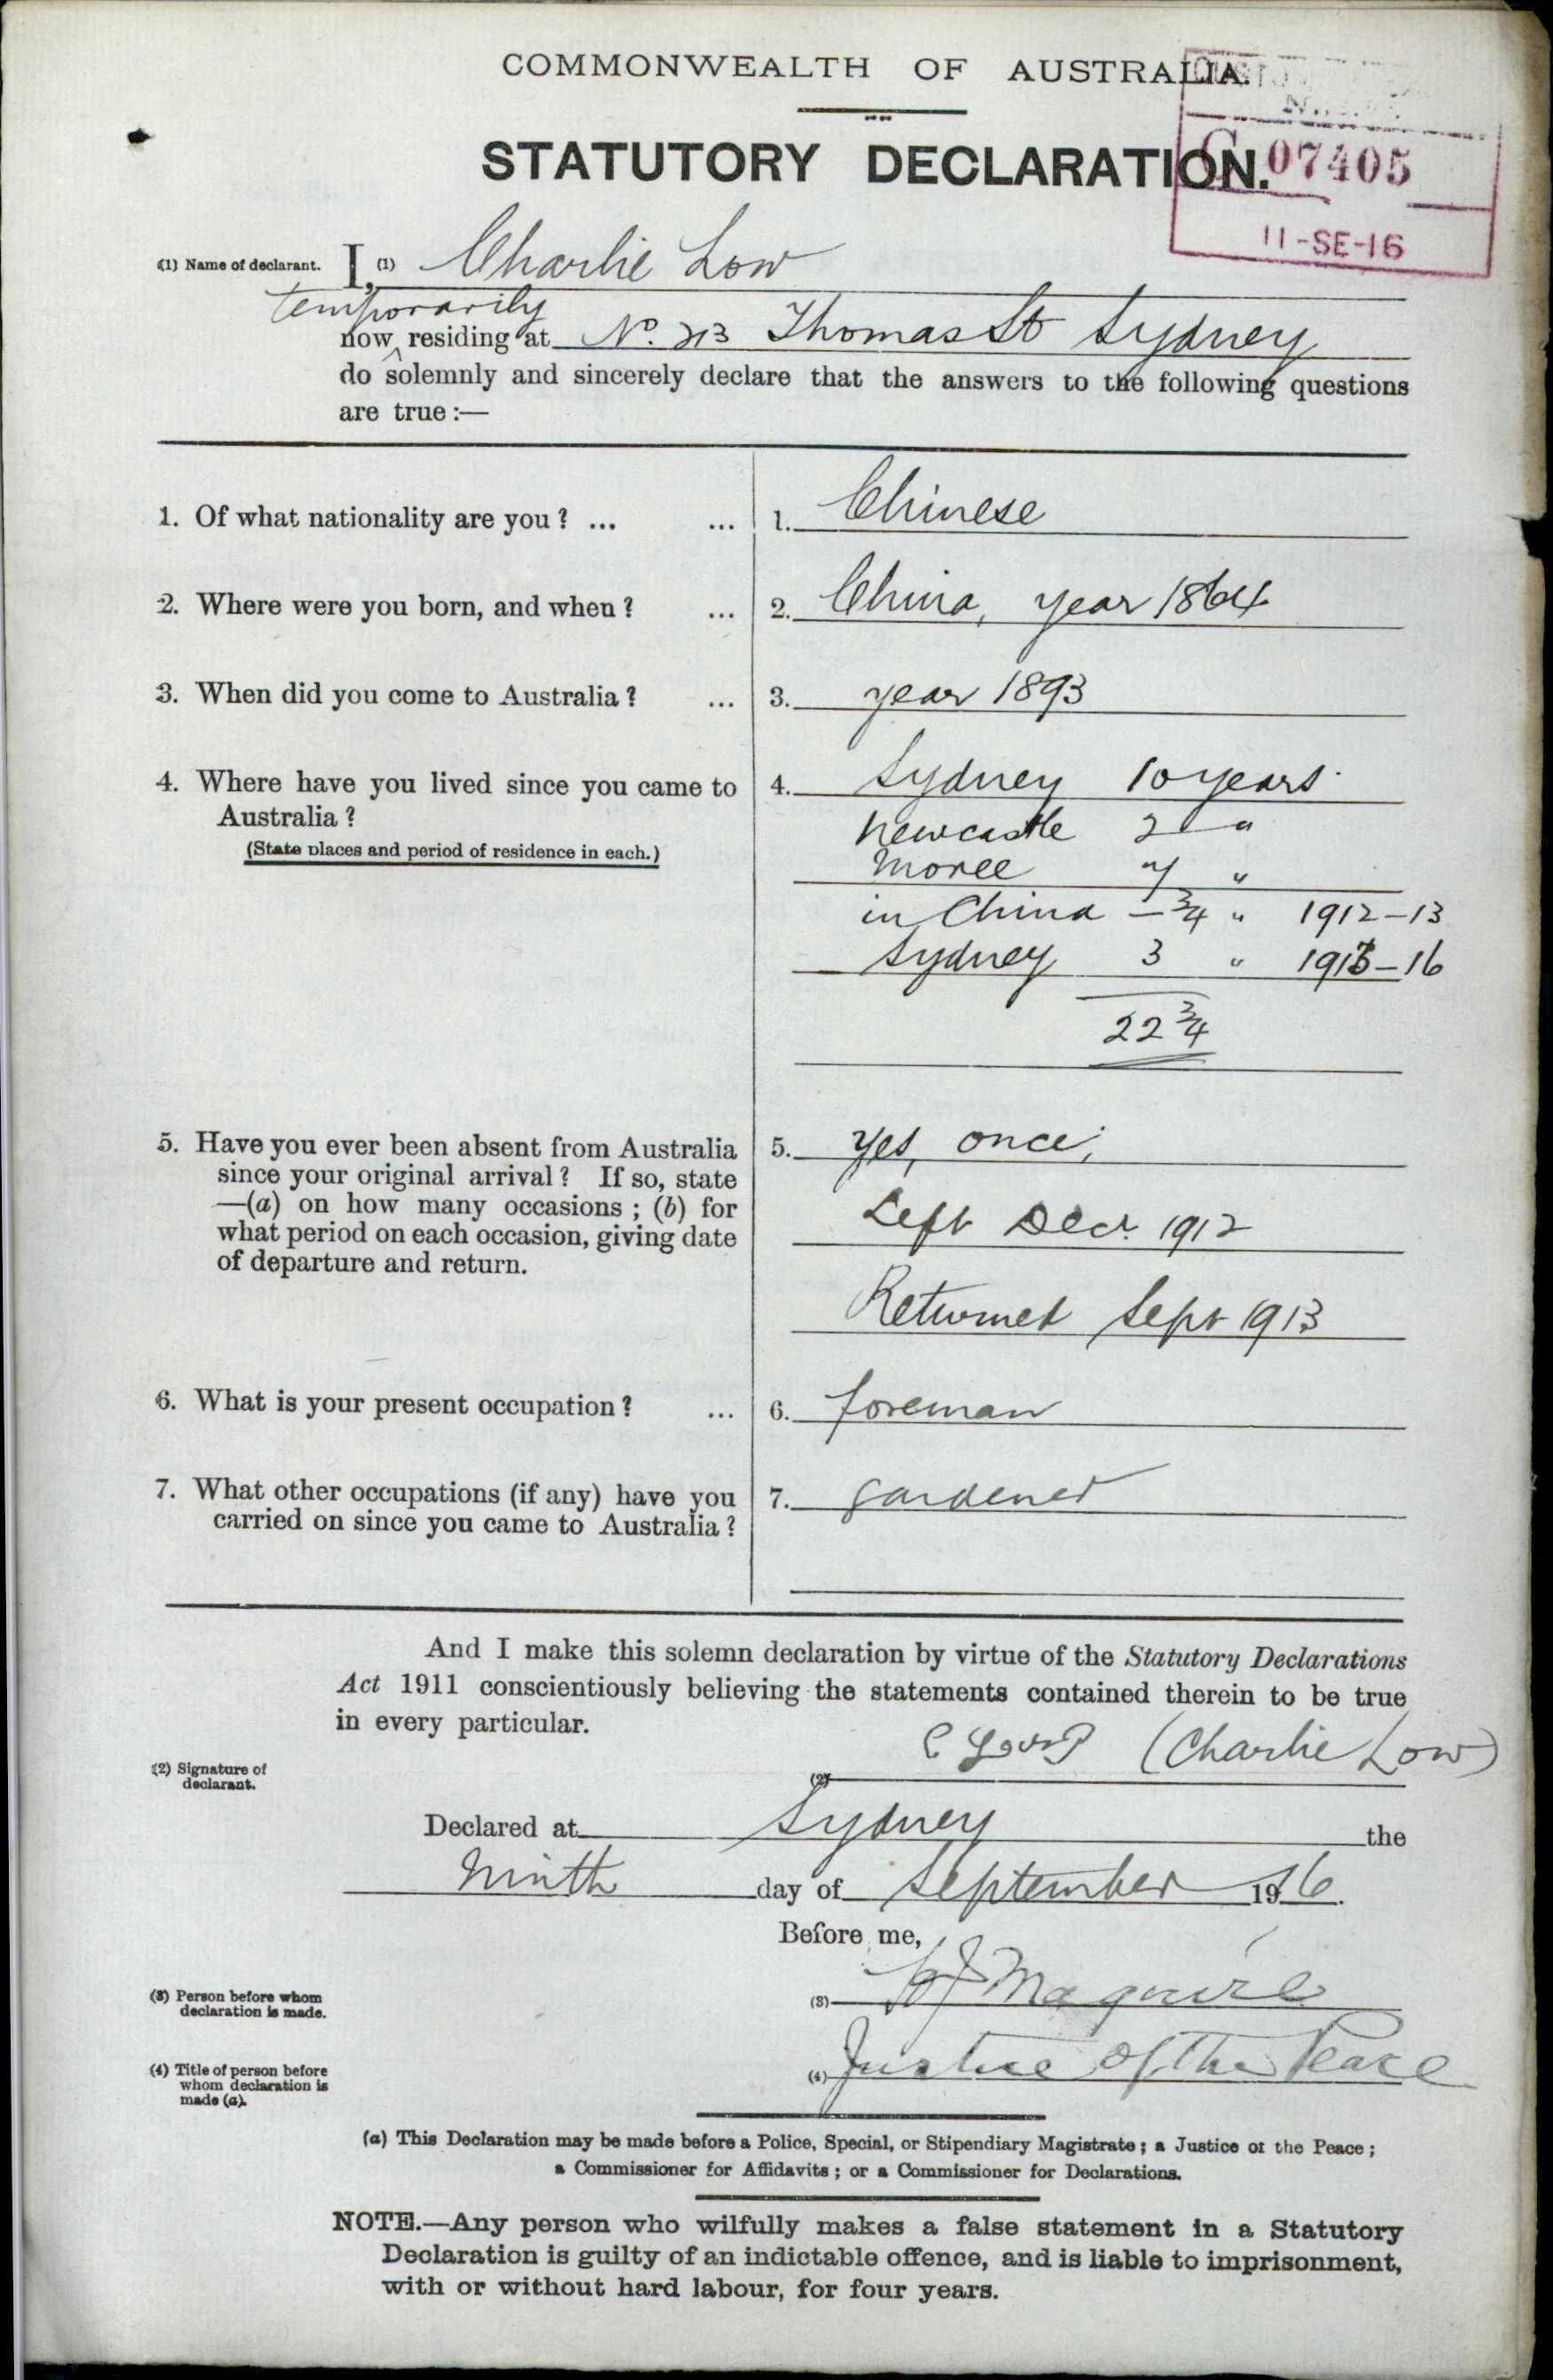 COMMONWEALTH OF AUSTRALIA.
STATUTORY DECLARATION.
C 07405
11-SE-16
(1) Name of declarant. I, (1) Charlie Low
temporarily
now residing at No. 213 Thomas St Sydney
do solemnly and sincerely declare that the answers to the following questions
are true :—
1. Of what nationality are you ? ... ... 1. Chinese
2. Where were you born, and when ? ... 2. China, year 1864
3. When did you come to Australia ? ... 3. year 1893
4. Where have you lived since you came to 4. Sydney 10 years
Australia ? Newcastle 2 "
(State places and period of residence in each.) Moree 7 "
in China — 3/4 " 1912–13
Sydney 3 " 1913–16
22 3/4
5. Have you ever been absent from Australia 5. Yes, once,
since your original arrival ? If so, state
—(a) on how many occasions ; (b) for Left Decr 1912
what period on each occasion, giving date
of departure and return.
Returned Sept 1913
6. What is your present occupation ? ... 6. foreman
7. What other occupations (if any) have you 7. gardener
carried on since you came to Australia ?
And I make this solemn declaration by virtue of the Statutory Declarations
Act 1911 conscientiously believing the statements contained therein to be true
in every particular.
(Charlie Low)
(2) Signature of
declarant. (2)
Declared at Sydney the
Ninth day of September 1916.
Before me,
(3) Person before whom
declaration is made. (3) Maguire
(4) Title of person before
whom declaration is
made (a). (4) Justice of the Peace
(a) This Declaration may be made before a Police, Special, or Stipendiary Magistrate ; a Justice of the Peace ;
a Commissioner for Affidavits ; or a Commissioner for Declarations.
NOTE.—Any person who wilfully makes a false statement in a Statutory
Declaration is guilty of an indictable offence, and is liable to imprisonment,
with or without hard labour, for four years.